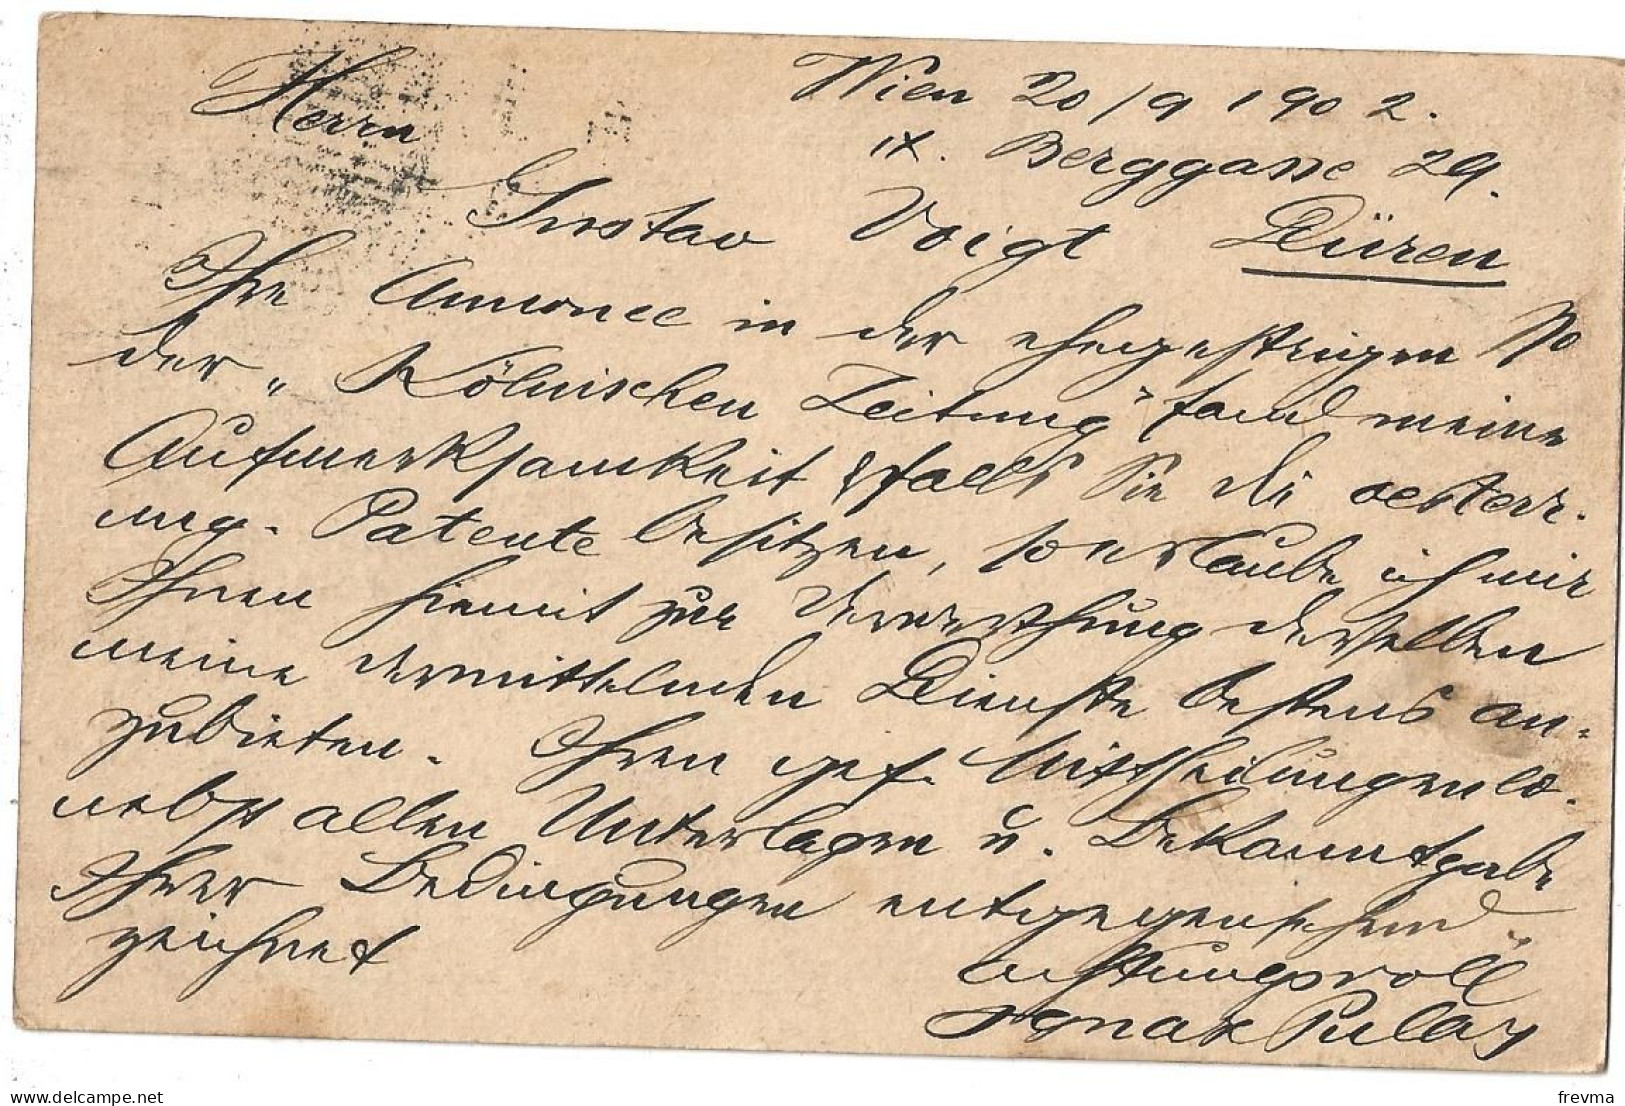 Wien 20/9 1902.
Herrn
IX. Berggasse 29.
Gustav Voigt Düren
Ihre Annonce in der ehegestrigen No
der „Kölnischen Zeitung" fand meine
Aufmerksamkeit & falls Sie die oesterr.
ung. Patente besitzen, so erlaube ich mir
Ihnen hiemit zur Verwerthung derselben
meine vermittelnden Dienste bestens an-
zubieten. Ihren gef. Mittheilungen
nebst allen Unterlagen u. Bekanntgabe
Ihrer Bedingungen entgegensehend
zeichnet
achtungsvoll
Ignaz Pulay
frevma